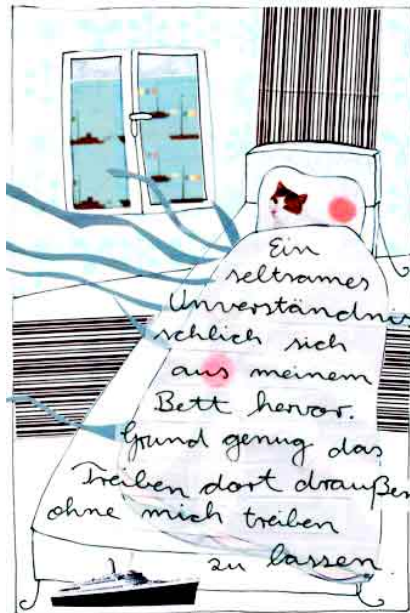 Ein
seltsames
Unverständnis
schlich sich
aus meinem
Bett hervor.
Grund genug das
Treiben dort draußen
ohne mich treiben
zu lassen.